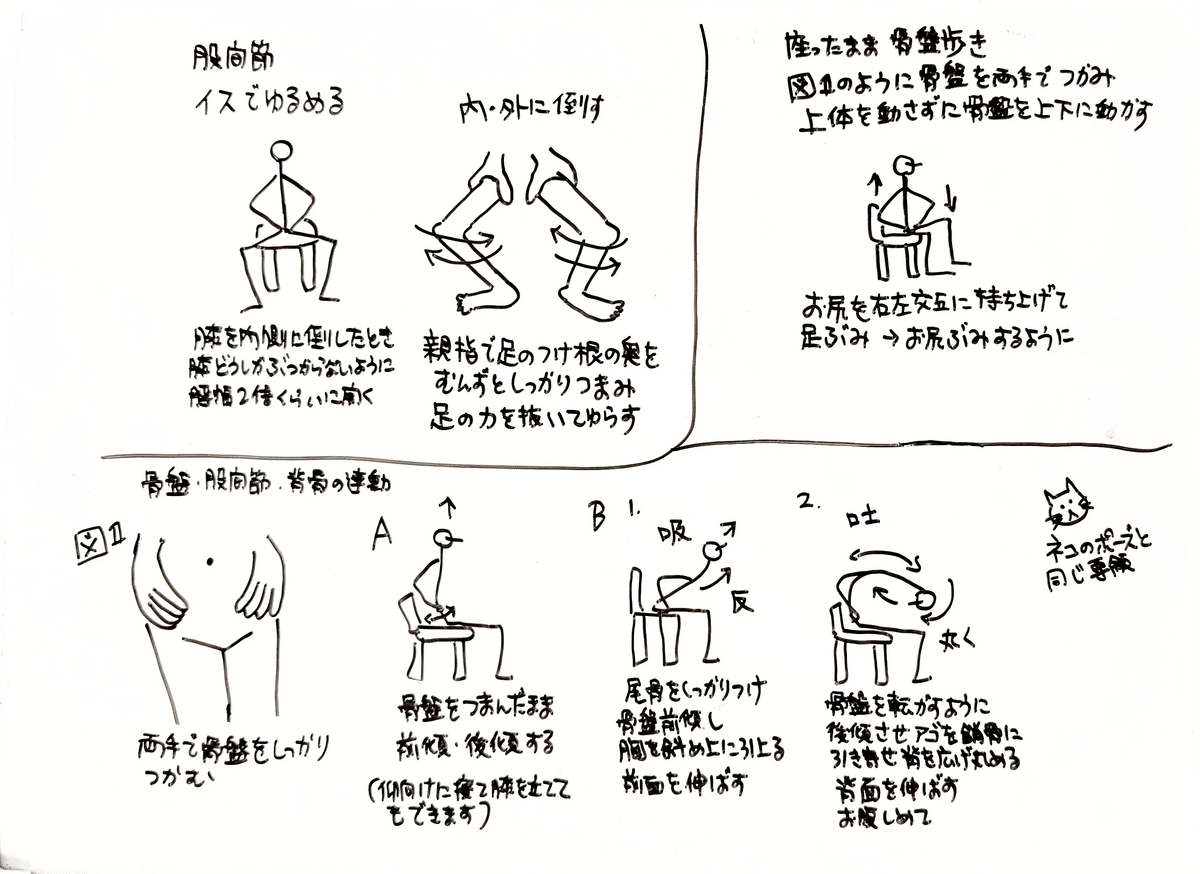 股間節
イスでゆるめる
膝を内側に倒したとき
膝どうしがぶつからないように
腰幅2倍くらいに開く
内・外に倒す
親指で足のつけ根の奥を
むんずとしっかりつまみ
足の力を抜いてゆらす
座ったまま 骨盤歩き
図1のように骨盤を両手でつかみ
上体を動さずに骨盤を上下に動かす
お尻を右左交互に持ち上げて
足ぶみ→お尻ぶみするように
骨盤・股間節・背骨の連動
図1
両手で骨盤をしっかり
つかむ
A
骨盤をつまんだまま
前傾・後傾する
(仰向けに寝て膝を立てて
もできます)
B 1.
吸
反
尾骨をしっかりつけ
骨盤前傾し
胸を斜め上に引上る
前面を伸ばす
2.
吐
丸く
骨盤を転がすように
後傾させアゴを鎖骨に
引き寄せ背を広げ丸める
背面を伸ばす
お腹しめて
ネコのポーズと
同じ要領